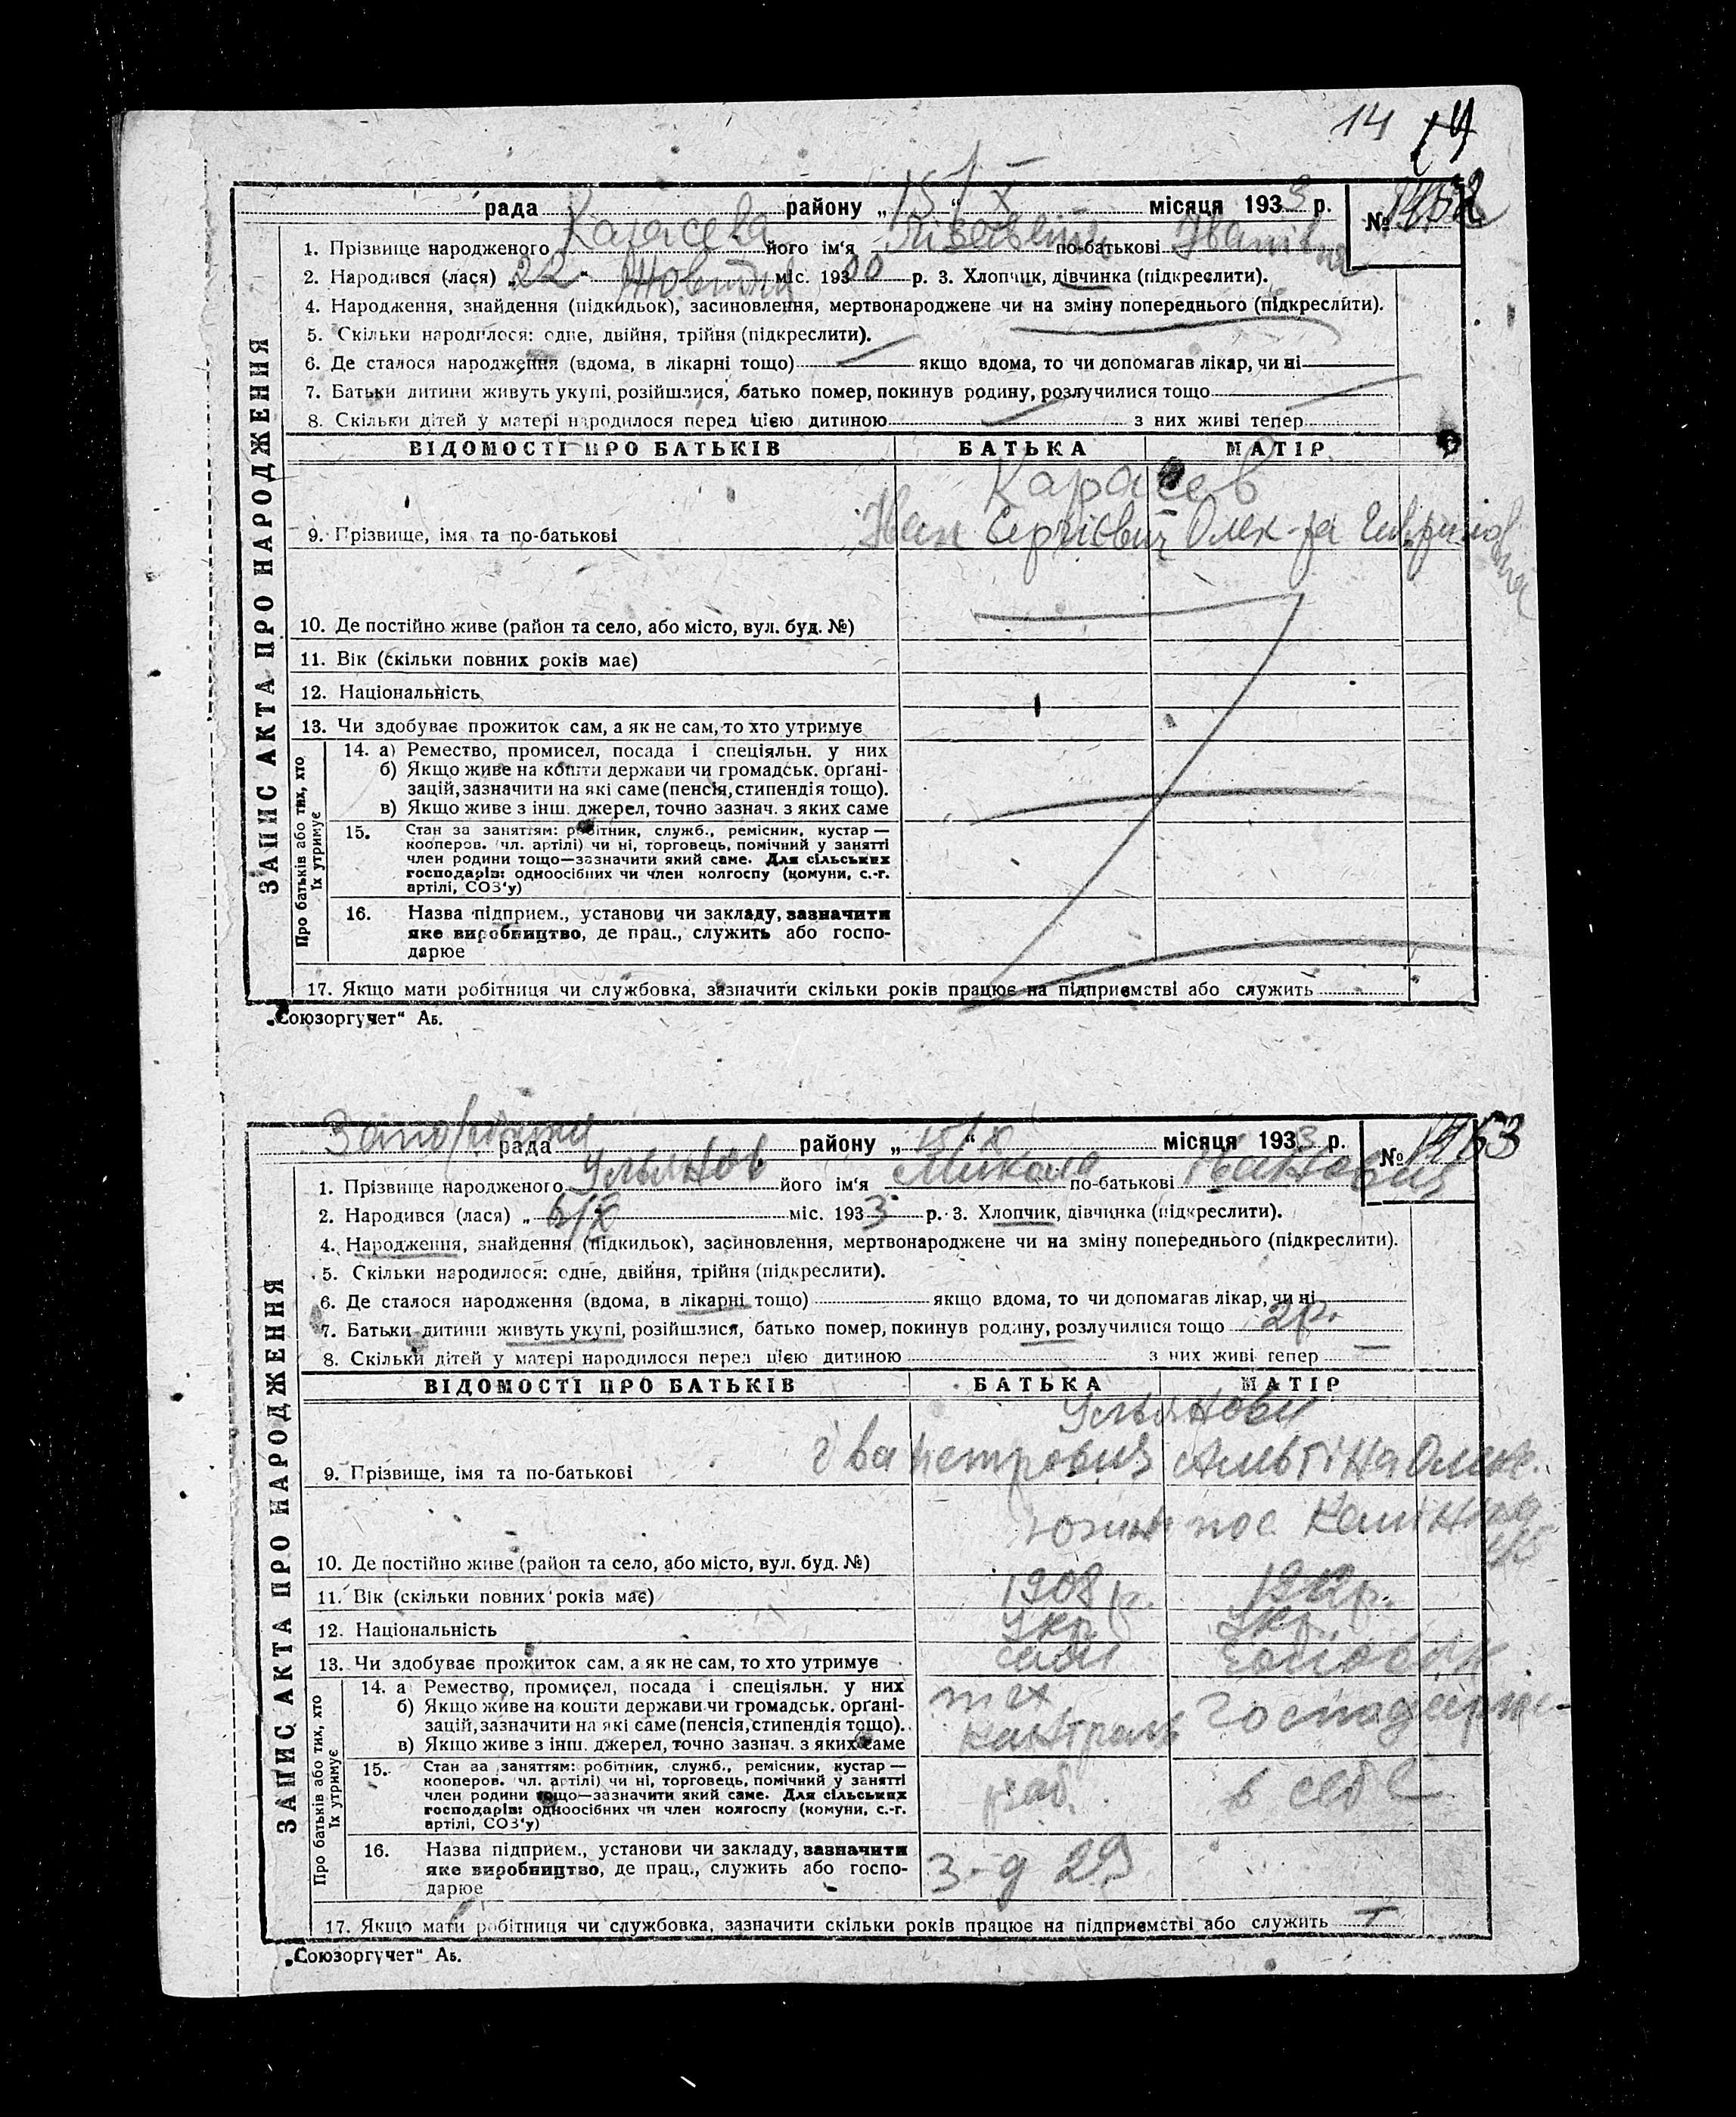 14 14
рада района „15/X“ місяця 1933 р. №
1. Прізвище народженого Карасева його ім'я Лизавета по-батькові Іванівна
2. Народився (лася) „22“ Жовтня міс. 1900 р. 3. Хлопчик, дівчинка (підкреслити).
4. Народження, знайдення (підкидьок), засиновлення, мертвонароджене чи на зміну попереднього (підкреслити).
5. Скільки народилося: одне, двійня, трійня (підкреслити).
6. Де сталося народження (вдома, в лікарні тощо) — якщо вдома, то чи допомагав лікар, чи ні
7. Батьки дитини живуть укупі, розійшлися, батько помер, покинув родину, розлучилися тощо —
8. Скільки дітей у матері народилося перед цією дитиною — з них живі тепер
ВІДОМОСТІ ПРО БАТЬКІВ БАТЬКА МАТІР
Карасев
9. Прізвище, імя та по-батькові Іван Сергієвич Олек-ра Гаврилов
на
10. Де постійно живе (район та село, або місто, вул. буд. №)
11. Вік (скільки повних років має)
12. Національність
13. Чи здобуває прожиток сам, а як не сам, то хто утримує
14. а) Ремество, промисел, посада і спеціяльн. у них
б) Якщо живе на кошти держави чи громадськ. органі-
зацій, зазначити на які саме (пенсія, стипендія тощо).
в) Якщо живе з інш. джерел, точно зазнач. з яких саме
15. Стан за заняттям: робітник, служб., ремісник, кустар —
кооперов. (чл. артілі) чи ні, торговець, помічний у занятті
член родини тощо—зазначити який саме. Для сільських
господарів: одноосібних чи член колгоспу (комуни, с.-г.
артілі, СОЗ'у)
16. Назва підприєм., установи чи закладу, зазначити
яке виробництво, де прац., служить або госпо-
дарює
17. Якщо мати робітниця чи службовка, зазначити скільки років працює на підприємстві або служить
ЗАПИС АКТА ПРО НАРОДЖЕННЯ
Про батьків або тих, хто
їх утримує
„Союзоргучет“ Аб.
рада району „15/X“ місяця 1933 р. №
1. Прізвище народженого Ульянов його ім'я Микола по-батькові Іванович
2. Народився (лася) „ міс. 1933 р. 3. Хлопчик, дівчинка (підкреслити).
4. Народження, знайдення (підкидьок), засиновлення, мертвонароджене чи на зміну попереднього (підкреслити).
5. Скільки народилося: одне, двійня, трійня (підкреслити).
6. Де сталося народження (вдома, в лікарні тощо) якщо вдома, то чи допомагав лікар, чи ні
7. Батьки дитини живуть укупі, розійшлися, батько помер, покинув родину, розлучилися тощо 2 р.
8. Скільки дітей у матері народилося перед цією дитиною з них живі тепер —
ВІДОМОСТІ ПРО БАТЬКІВ БАТЬКА МАТІР
Ульянови
9. Прізвище, імя та по-батькові Іва Петрович Альвтіна Олекс.
пос. Калініна
10. Де постійно живе (район та село, або місто, вул. буд. №)
11. Вік (скільки повних років має) 1908 р. 1912 р.
12. Національність Укр Укр
13. Чи здобуває прожиток сам, а як не сам, то хто утримує сам Чоловік
14. а Ремество, промисел, посада і спеціяльн. у них тех
б) Якщо живе на кошти держави чи громадськ. органі-
зацій, зазначити на які саме (пенсія, стипендія тощо).
в) Якщо живе з інш. джерел, точно зазнач. з яких саме контроль господарює
15. Стан за заняттям: робітник, служб., ремісник, кустар —
кооперов. (чл. артілі) чи ні, торговець, помічний у занятті
член родини тощо—зазначити який саме. Для сільських раб. в себе
господарів: одноосібних чи член колгоспу (комуни, с.-г.
артілі, СОЗ'у)
16. Назва підприєм., установи чи закладу, зазначити
яке виробництво, де прац., служить або госпо- З-д 29
дарює
17. Якщо мати робітниця чи службовка, зазначити скільки років працює на підприємстві або служить —
ЗАПИС АКТА ПРО НАРОДЖЕННЯ
Про батьків або тих, хто
їх утримує
„Союзоргучет“ Аб.